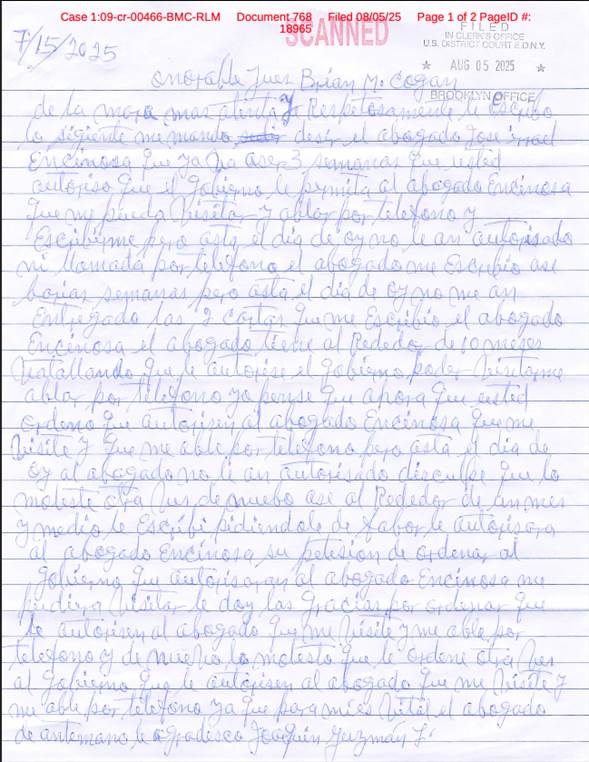 Case 1:09-cr-00466-BMC-RLM Document 768 Filed 08/05/25 Page 1 of 2 PageID #:
18965
SCANNED
FILED
IN CLERK'S OFFICE
U.S. DISTRICT COURT E.D.N.Y.
★ AUG 05 2025 ★
BROOKLYN OFFICE
7/15/2025
onorable Jues Brian M. Cogan
de la mara mas atinta y Respetosamente le escribo
lo sigiente me mando desir el abogado Jose israel
Encinosa que ya ha aser 3 semanas que usted
autoriso que el gobierno le permita al abogado Encinosa
que me pueda visitar y ablar por telefono y
Escribirme pero asta el dia de oy no le an autorisado
ni llamada por telefono el abogado me Escribio ase
barias semanas pero asta el dia de oy no me an
Entregado las 2 cartas que me Escribio el abogado
Encinosa el abogado tiene al Rededor de 10 meses
vatallando que le autorise el gobierno poder visitarme
ablar por telefono yo pense que ahora que usted
ordeno que autorisen al abogado Encinosa que me
visite y que me able por telefono pero asta el dia de
oy al abogado no le an autorisado disculpe que lo
moleste otra ves de nuebo ase al Rededor de un mes
y medio le Escribi pidiendole de fabor le autorisara
al abogado Encinosa su petision de ordenar al
gobierno que autorisaran al abogado Encinosa me
pudiera visitar le doy las gracias por ordenar que
le autorisen al abogado que me visite y me able por
telefono y de nuebo lo molesto que le ordene otra ves
al gobierno que le autorisen al abogado que me visite y
me able por telefono ya que para mi es vital el abogado
de antemano le agradesco Joaquin guzman L.